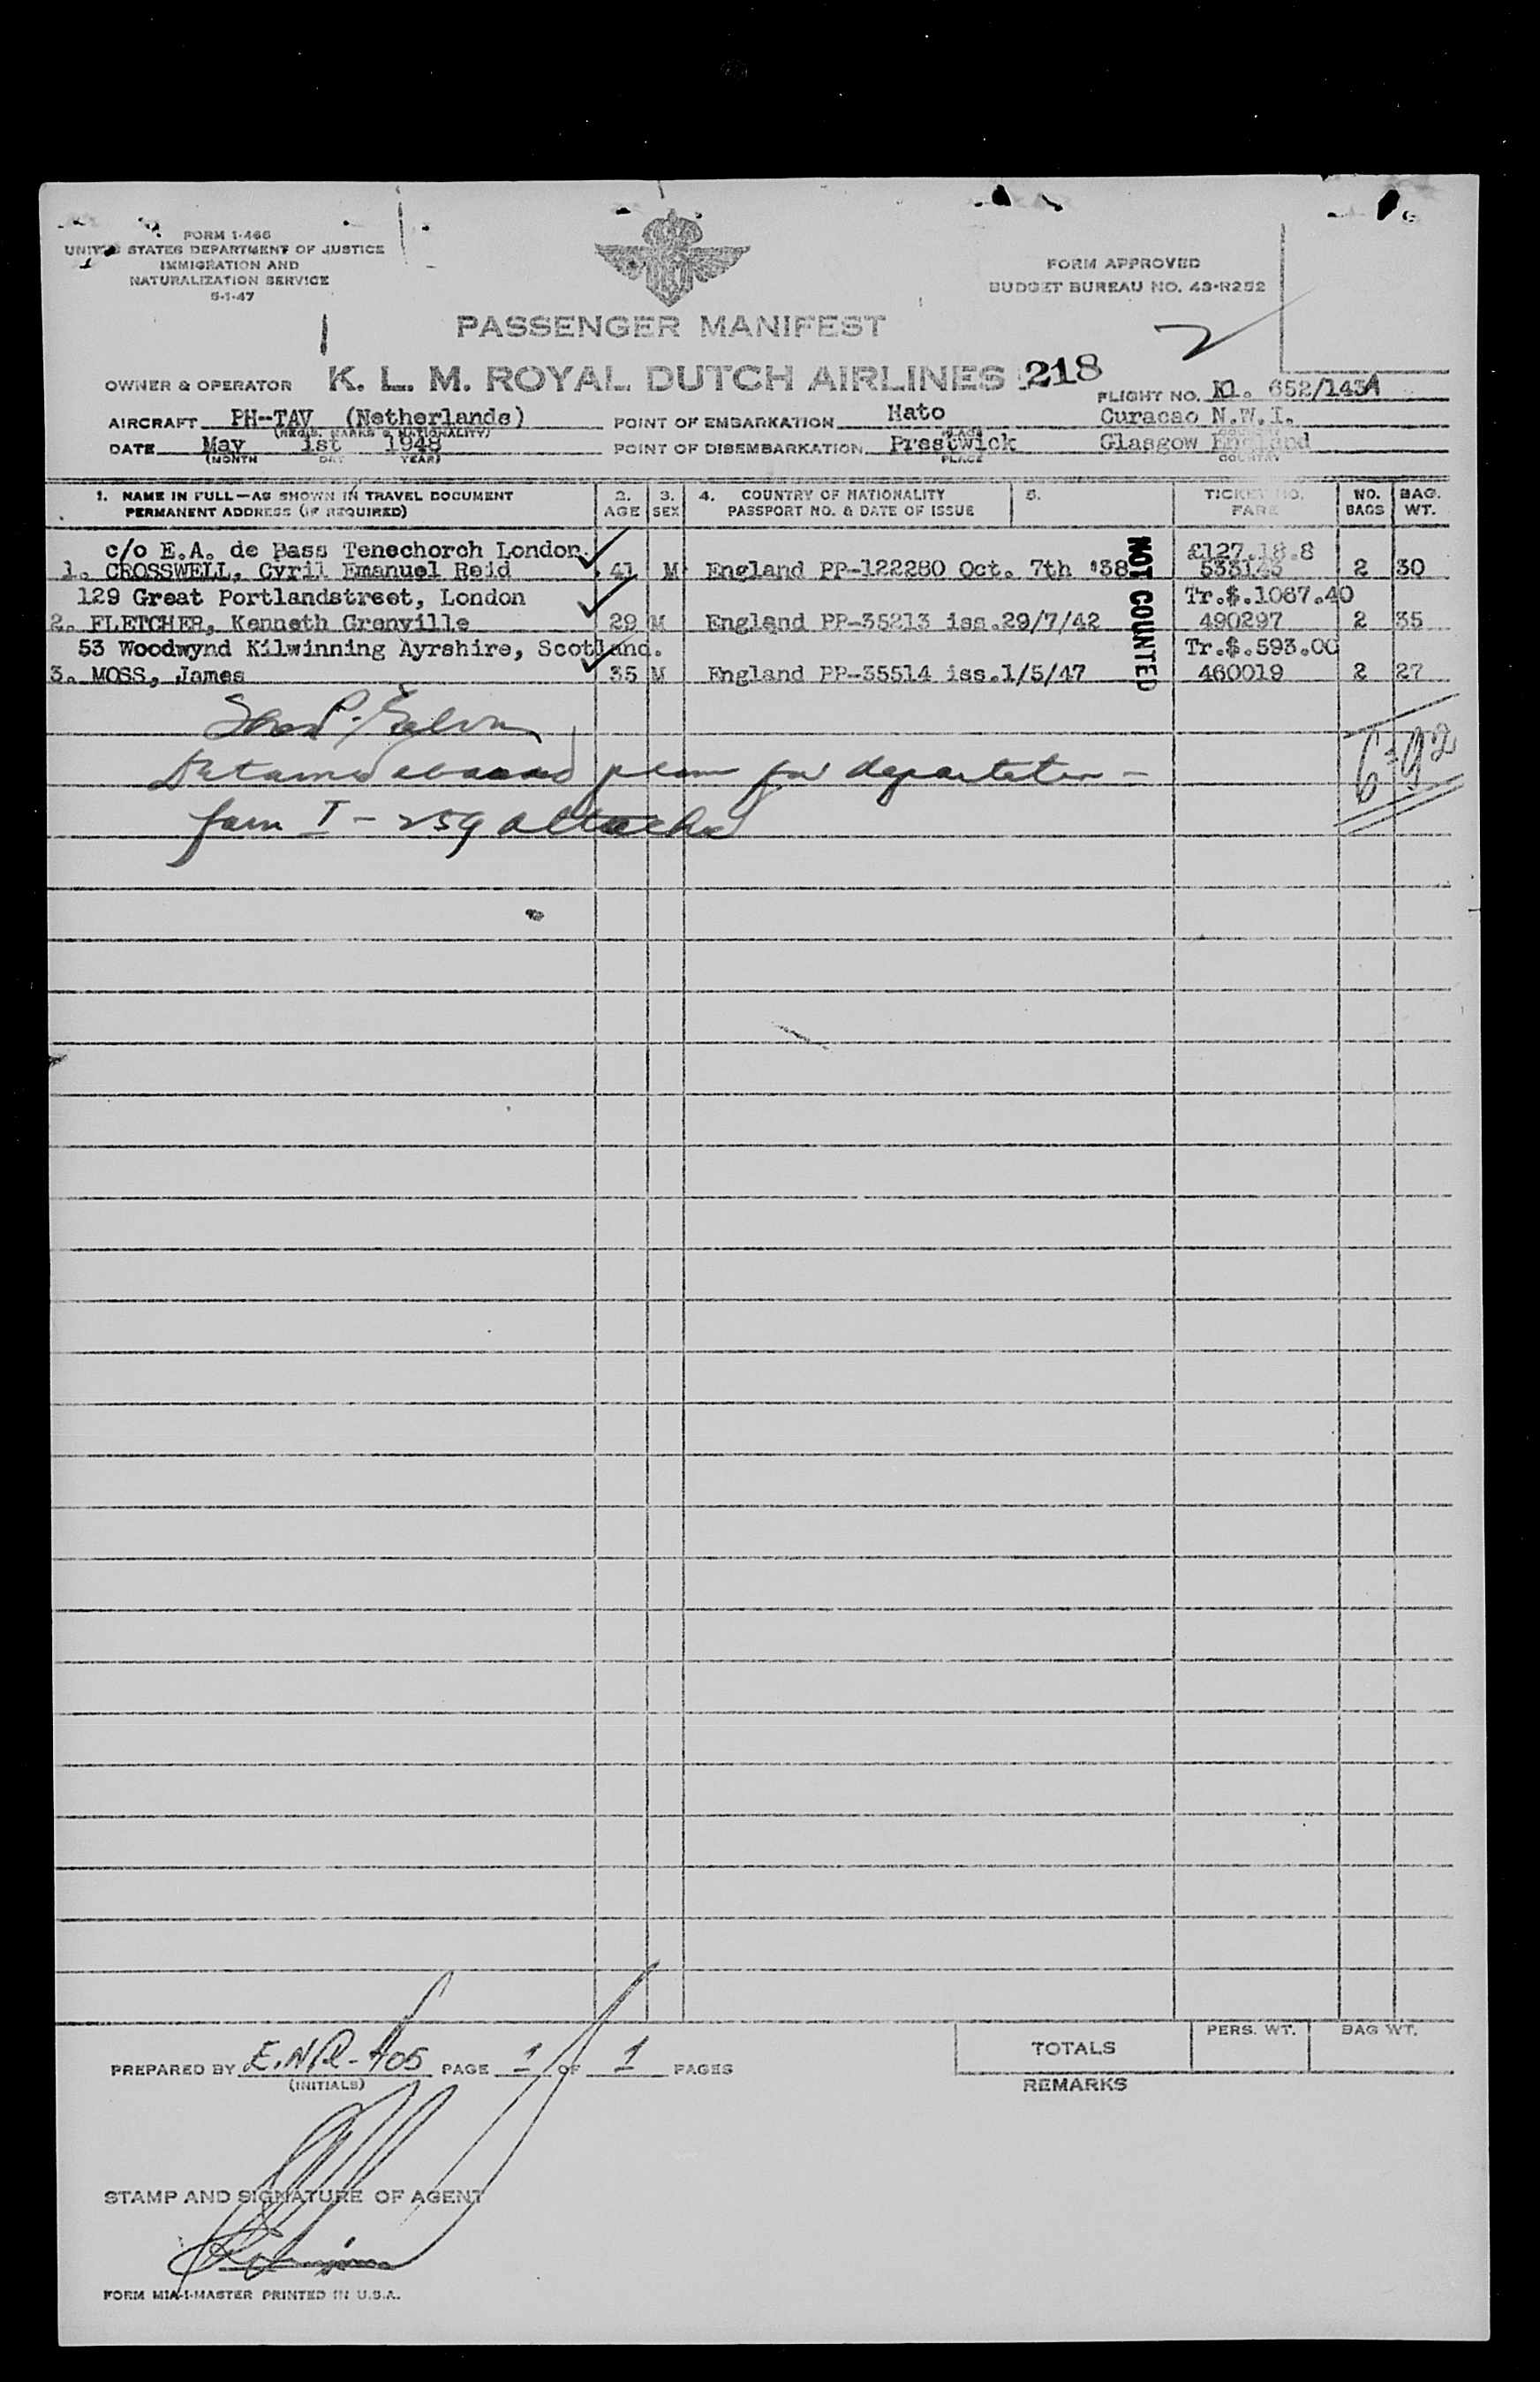 FORM I-466
UNITED STATES DEPARTMENT OF JUSTICE
IMMIGRATION AND
NATURALIZATION SERVICE
5-1-47
FORM APPROVED
BUDGET BUREAU NO. 43-R252
PASSENGER MANIFEST
OWNER & OPERATOR K. L. M. ROYAL DUTCH AIRLINES 218
FLIGHT NO. Kl. 652/143A
AIRCRAFT PH-TAV (Netherlands) POINT OF EMBARKATION Hato Curacao N.W.I.
(REGIS. MARKS & NATIONALITY) PLACE COUNTRY
DATE May 1st 1948 POINT OF DISEMBARKATION Prestwick Glasgow England
(MONTH DAY YEAR) PLACE COUNTRY
1. NAME IN FULL—AS SHOWN IN TRAVEL DOCUMENT 2. 3. 4. COUNTRY OF NATIONALITY 5. TICKET NO. NO. BAG.
PERMANENT ADDRESS (IF REQUIRED) AGE SEX PASSPORT NO. & DATE OF ISSUE FARE BAGS WT.
c/o E.A. de Pass Tenechorch London. £127.18.8
1. CROSSWELL, Cyril Emanuel Reid 41 M England PP-122280 Oct. 7th '38 533143 2 30
129 Great Portlandstreet, London Tr.$.1067.40
2. FLETCHER, Kenneth Grenville 29 M England PP-35213 iss.29/7/42 490297 2 35
53 Woodwynd Kilwinning Ayrshire, Scotland. Tr.$.593.00
3. MOSS, James 35 M England PP-35514 iss.1/5/47 460019 2 27
NOT COUNTED
6-92
Detained aboard plane for deportation -
form I - 259 attached
PERS. WT. BAG WT.
TOTALS
PREPARED BY PAGE 1 OF 1 PAGES
(INITIALS)
REMARKS
STAMP AND SIGNATURE OF AGENT
FORM MIA-1-MASTER PRINTED IN U.S.A.